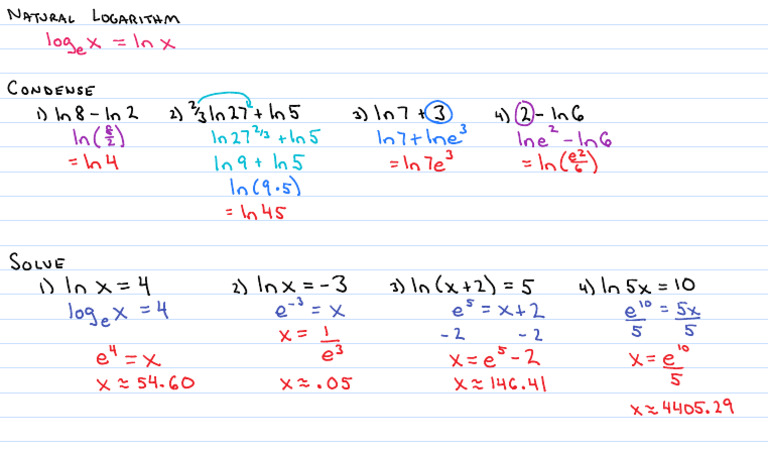 NATURAL LOGARITHM
logₑx = ln x
CONDENSE
1) ln 8 − ln 2
ln(8/2)
= ln 4
2) 2/3 ln 27 + ln 5
ln 27^2/3 + ln 5
ln 9 + ln 5
ln(9·5)
= ln 45
3) ln 7 + 3
ln 7 + ln e³
= ln 7e³
4) 2 − ln 6
ln e² − ln 6
= ln(e²/6)
SOLVE
1) ln x = 4
logₑx = 4
e⁴ = x
x ≈ 54.60
2) ln x = −3
e⁻³ = x
x = 1/e³
x ≈ .05
3) ln(x+2) = 5
e⁵ = x+2
−2 −2
x = e⁵ − 2
x ≈ 146.41
4) ln 5x = 10
e¹⁰/5 = 5x/5
x = e¹⁰/5
x ≈ 4405.29